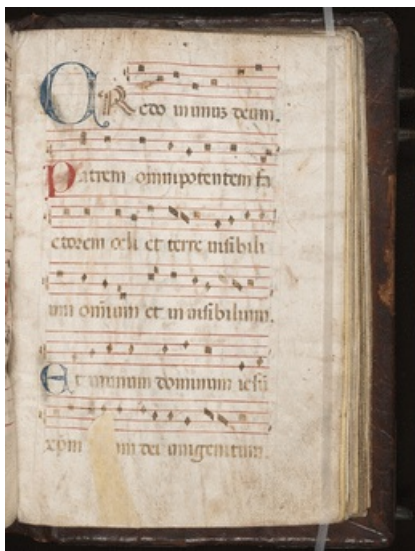 CRedo in unuz deum.
Patrem omnipotentem fa
ctorem celi et terre uisibili
um omium et in uisibilium.
Et in unum dominum iesu
xpm dei unigenitum.